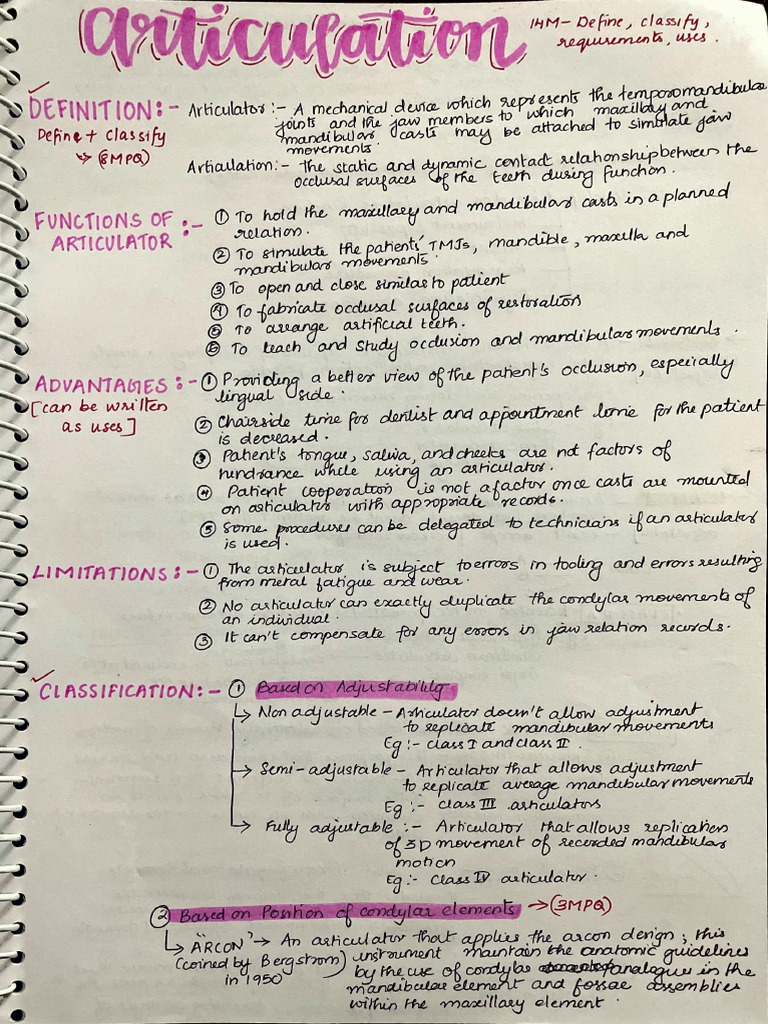 articulation
14M - Define, classify,
requirements, uses.
DEFINITION:- Articulator:- A mechanical device which represents the temporomandibular
joints and the jaw members to which maxillary and
mandibular casts may be attached to simulate jaw
movements.
Define + Classify
(8MPQ)
Articulation:- The static and dynamic contact relationship between the
occlusal surfaces of the teeth during function.
FUNCTIONS OF ARTICULATOR:-
① To hold the maxillary and mandibular casts in a planned
relation.
② To simulate the patients' TMJs, mandible, maxilla and
mandibular movements.
③ To open and close similar to patient
④ To fabricate occlusal surfaces of restoration
⑤ To arrange artificial teeth.
⑥ To teach and study occlusion and mandibular movements.
ADVANTAGES:- ① Providing a better view of the patient's occlusion, especially
lingual side.
[can be written
as uses]
② Chairside time for dentist and appointment time for the patient
is decreased.
③ Patient's tongue, saliva, and cheeks are not factors of
hindrance while using an articulator.
④ Patient cooperation is not a factor once casts are mounted
on articulator with appropriate records.
⑤ Some procedures can be delegated to technicians if an articulator
is used.
LIMITATIONS:- ① The articulator is subject to errors in tooling and errors resulting
from metal fatigue and wear.
② No articulator can exactly duplicate the condylar movements of
an individual.
③ It can't compensate for any errors in jaw relation records.
CLASSIFICATION:- ① Based on Adjustability
↳ Non adjustable - Articulator doesn't allow adjustment
to replicate mandibular movements
Eg:- class I and class II.
→ Semi-adjustable - Articulator that allows adjustment
to replicate average mandibular movements
Eg:- Class III articulators
↳ Fully adjustable:- Articulator that allows replication
of 3D movement of recorded mandibular
motion
Eg:- Class IV articulator.
② Based on Position of condylar elements → (3MPQ)
↳ "ARCON" → An articulator that applies the arcon design; this
(coined by Bergstrom) instrument maintain the anatomic guidelines
in 1950 by the use of condylar analogue in the
mandibular element and fossae assemblies
within the maxillary element.